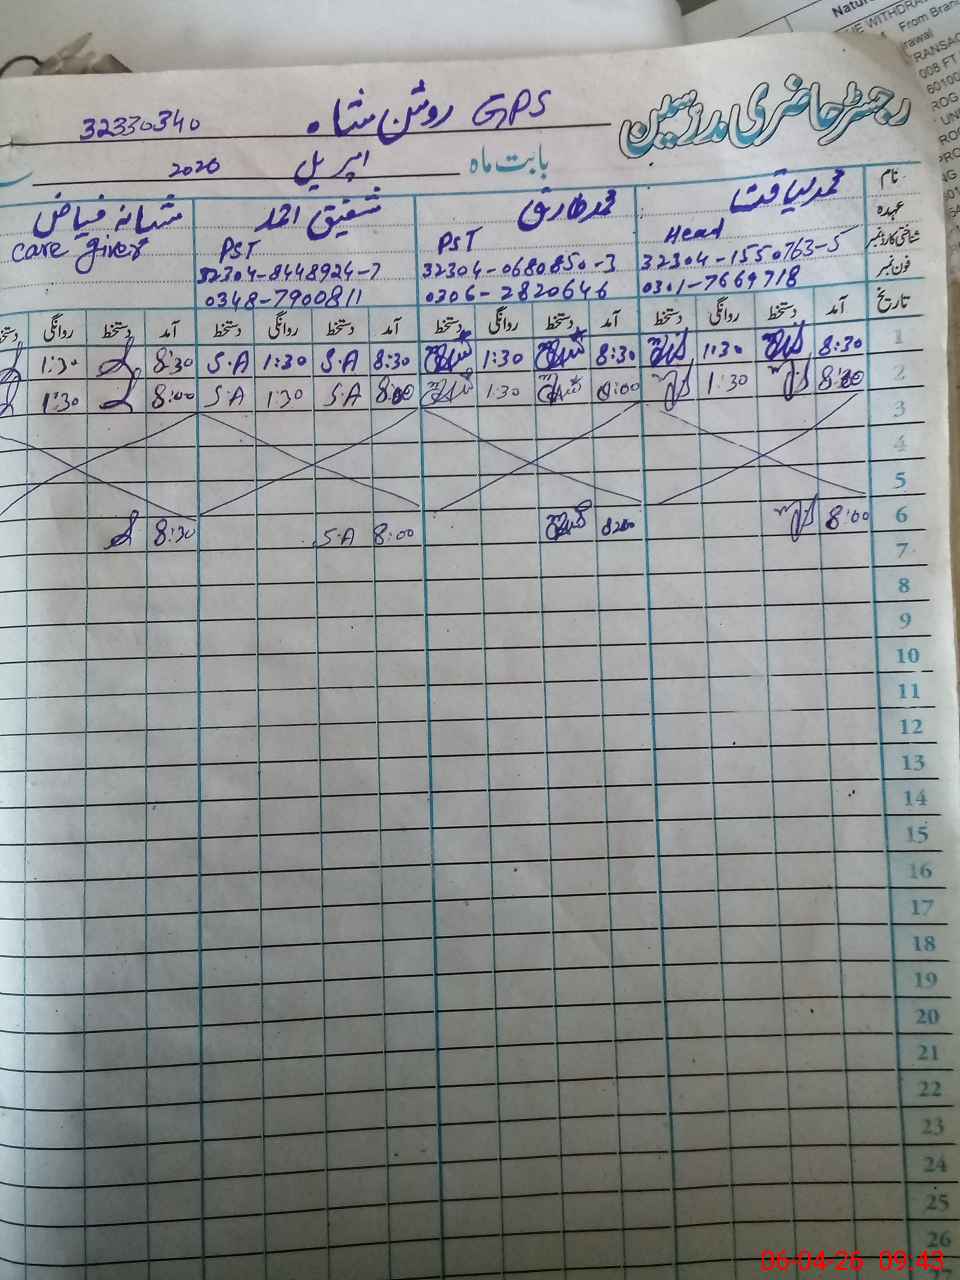 رجسٹر حاضری مدرسین
GPS روشن شاہ 32330340
بابت ماہ اپریل 2026
نام محمد لیاقت محمد طارق شفیق احمد شبانہ فیاض
عہدہ Head PST PST care giver
شناختی کارڈ نمبر 32304-1550763-5 32304-0680850-3 32304-8448924-7
فون نمبر 0301-7669718 0306-2820646 0348-7900811
تاریخ آمد دستخط روانگی دستخط آمد دستخط روانگی دستخط آمد دستخط روانگی دستخط آمد دستخط روانگی
1 8:30 1:30 8:30 1:30 8:30 S.A 1:30 S.A 8:30 1:30
2 1:30 1:30 S.A 1:30 S.A 8:00 1:30
3
4
5
6 8:00 8:00 S.A 8:30
7
8
9
10
11
12
13
14
15
16
17
18
19
20
21
22
23
24
25
26
Natur
E WITHDRA
From Bran
rawal
RANSAC
008 FT
60100
ROG
UNI
PRO
06-04-26 09:43